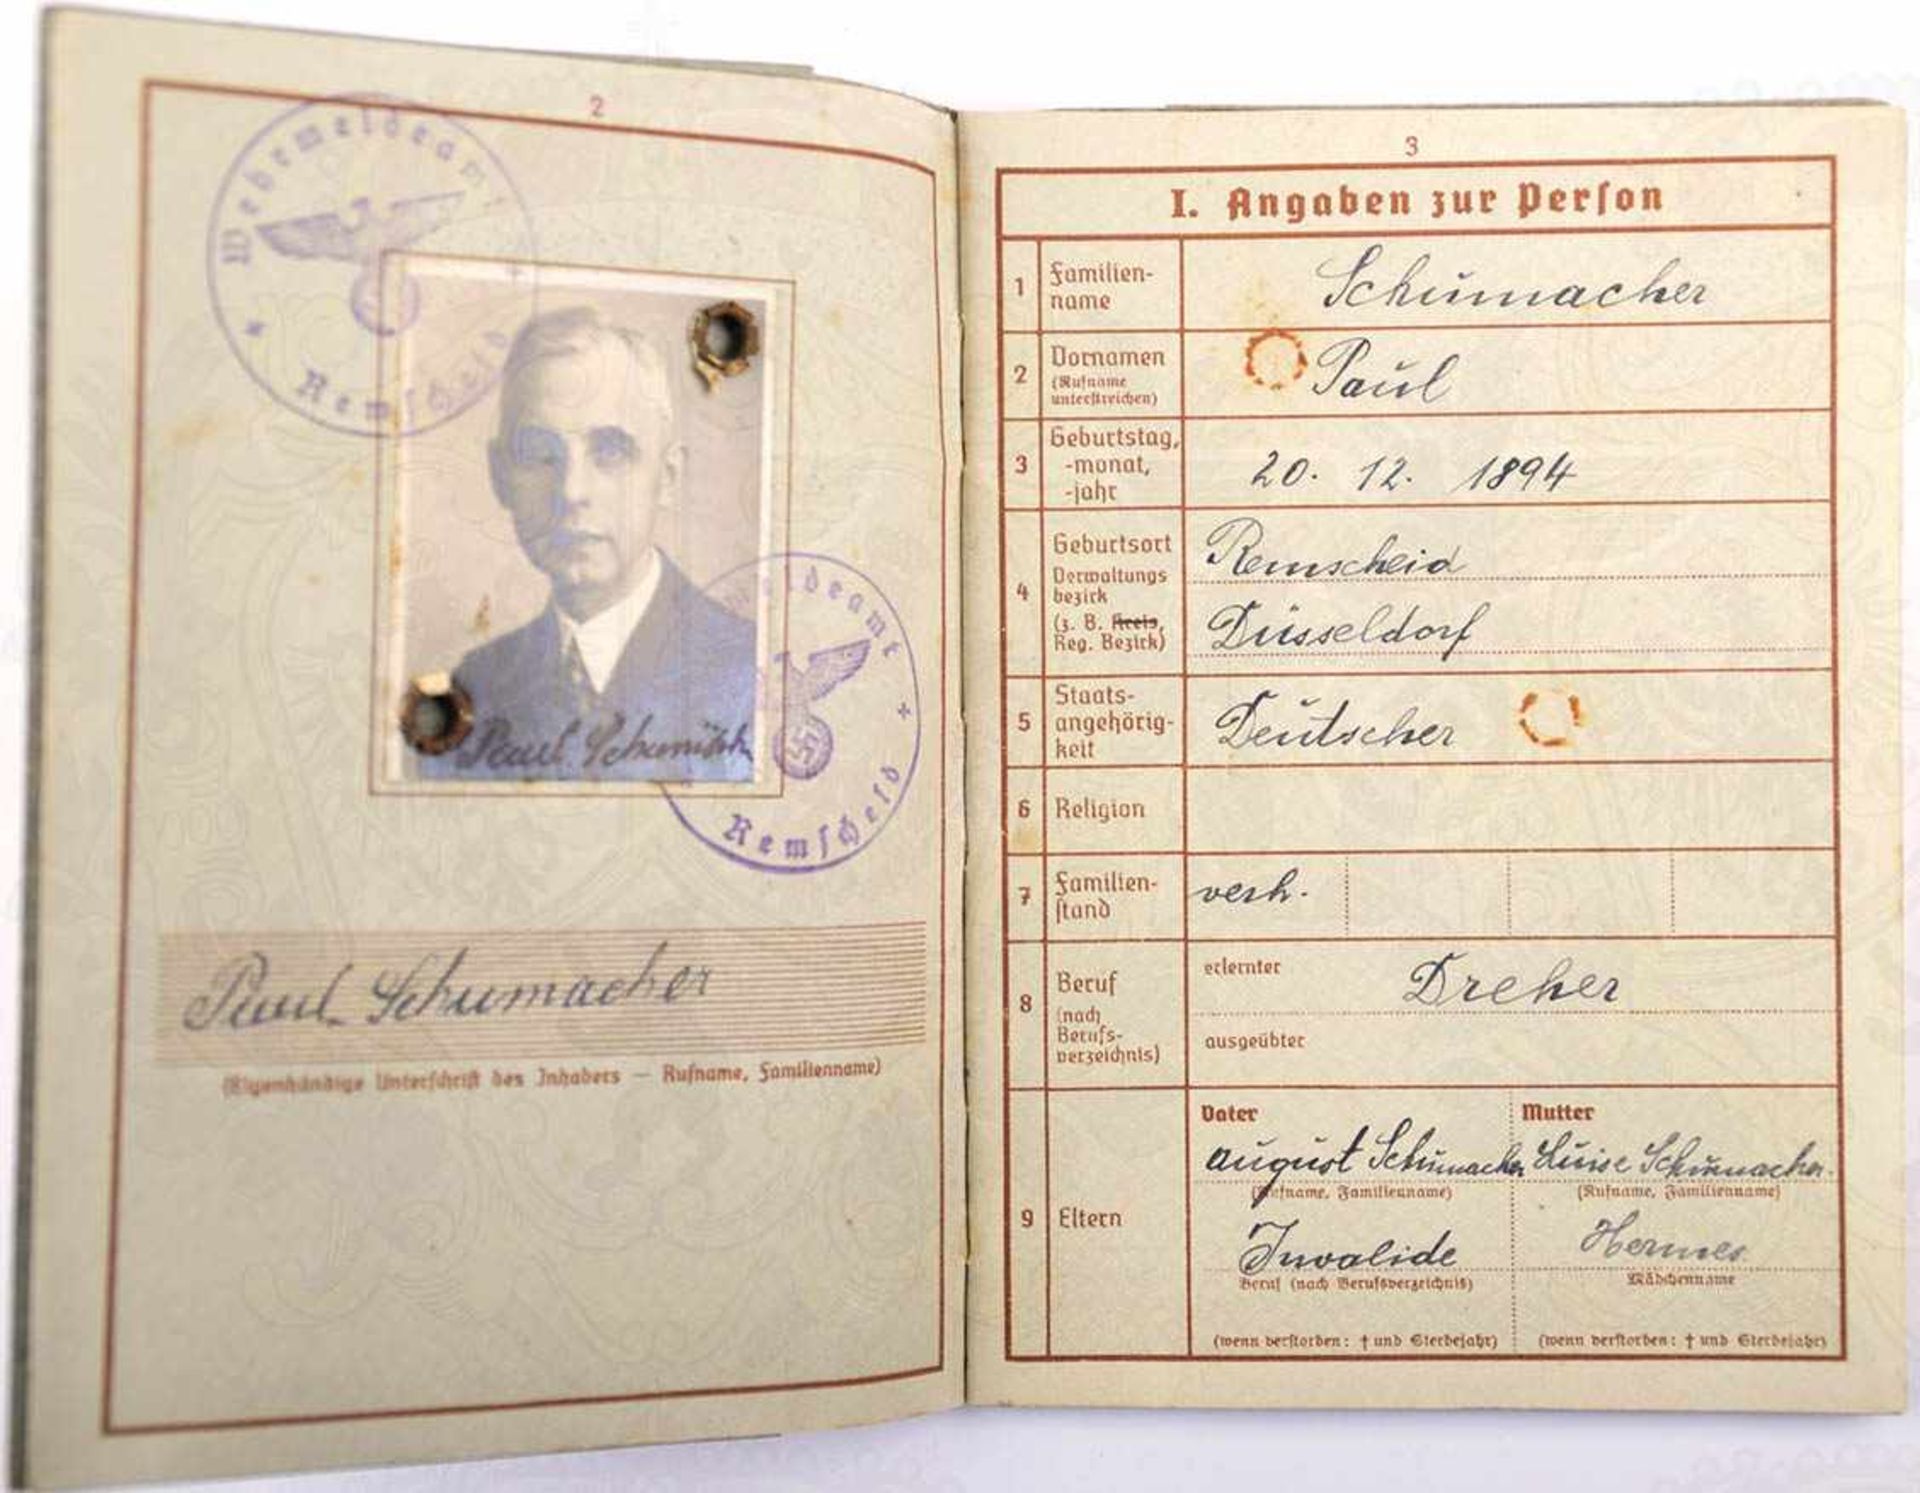 2
Wehrmeldeamt
Remscheid
Paul Schumach
Wehrmeldeamt
Remscheid
Paul Schumacher
(Eigenhändige Unterschrift des Inhabers — Rufname, Familienname)
3
I. Angaben zur Person
1 Familien-
name
Schumacher
2 Vornamen
(Rufname
unterstreichen)
Paul
3 Geburtstag,
-monat,
-jahr
20. 12. 1894
4 Geburtsort
Verwaltungs
bezirk
(z. B. Kreis,
Reg. Bezirk)
Remscheid
Düsseldorf
5 Staats-
angehörig-
keit
Deutscher
6 Religion
7 Familien-
stand
verh.
8 Beruf
(nach
Berufs-
verzeichnis)
erlernter Dreher
ausgeübter
9 Eltern
Vater
August Schumacher
(Rufname, Familienname)
Invalide
Beruf (nach Berufsverzeichnis)
(wenn verstorben: † und Sterbejahr)
Mutter
Luise Schumacher
(Rufname, Familienname)
Hermes
Mädchenname
(wenn verstorben: † und Sterbejahr)